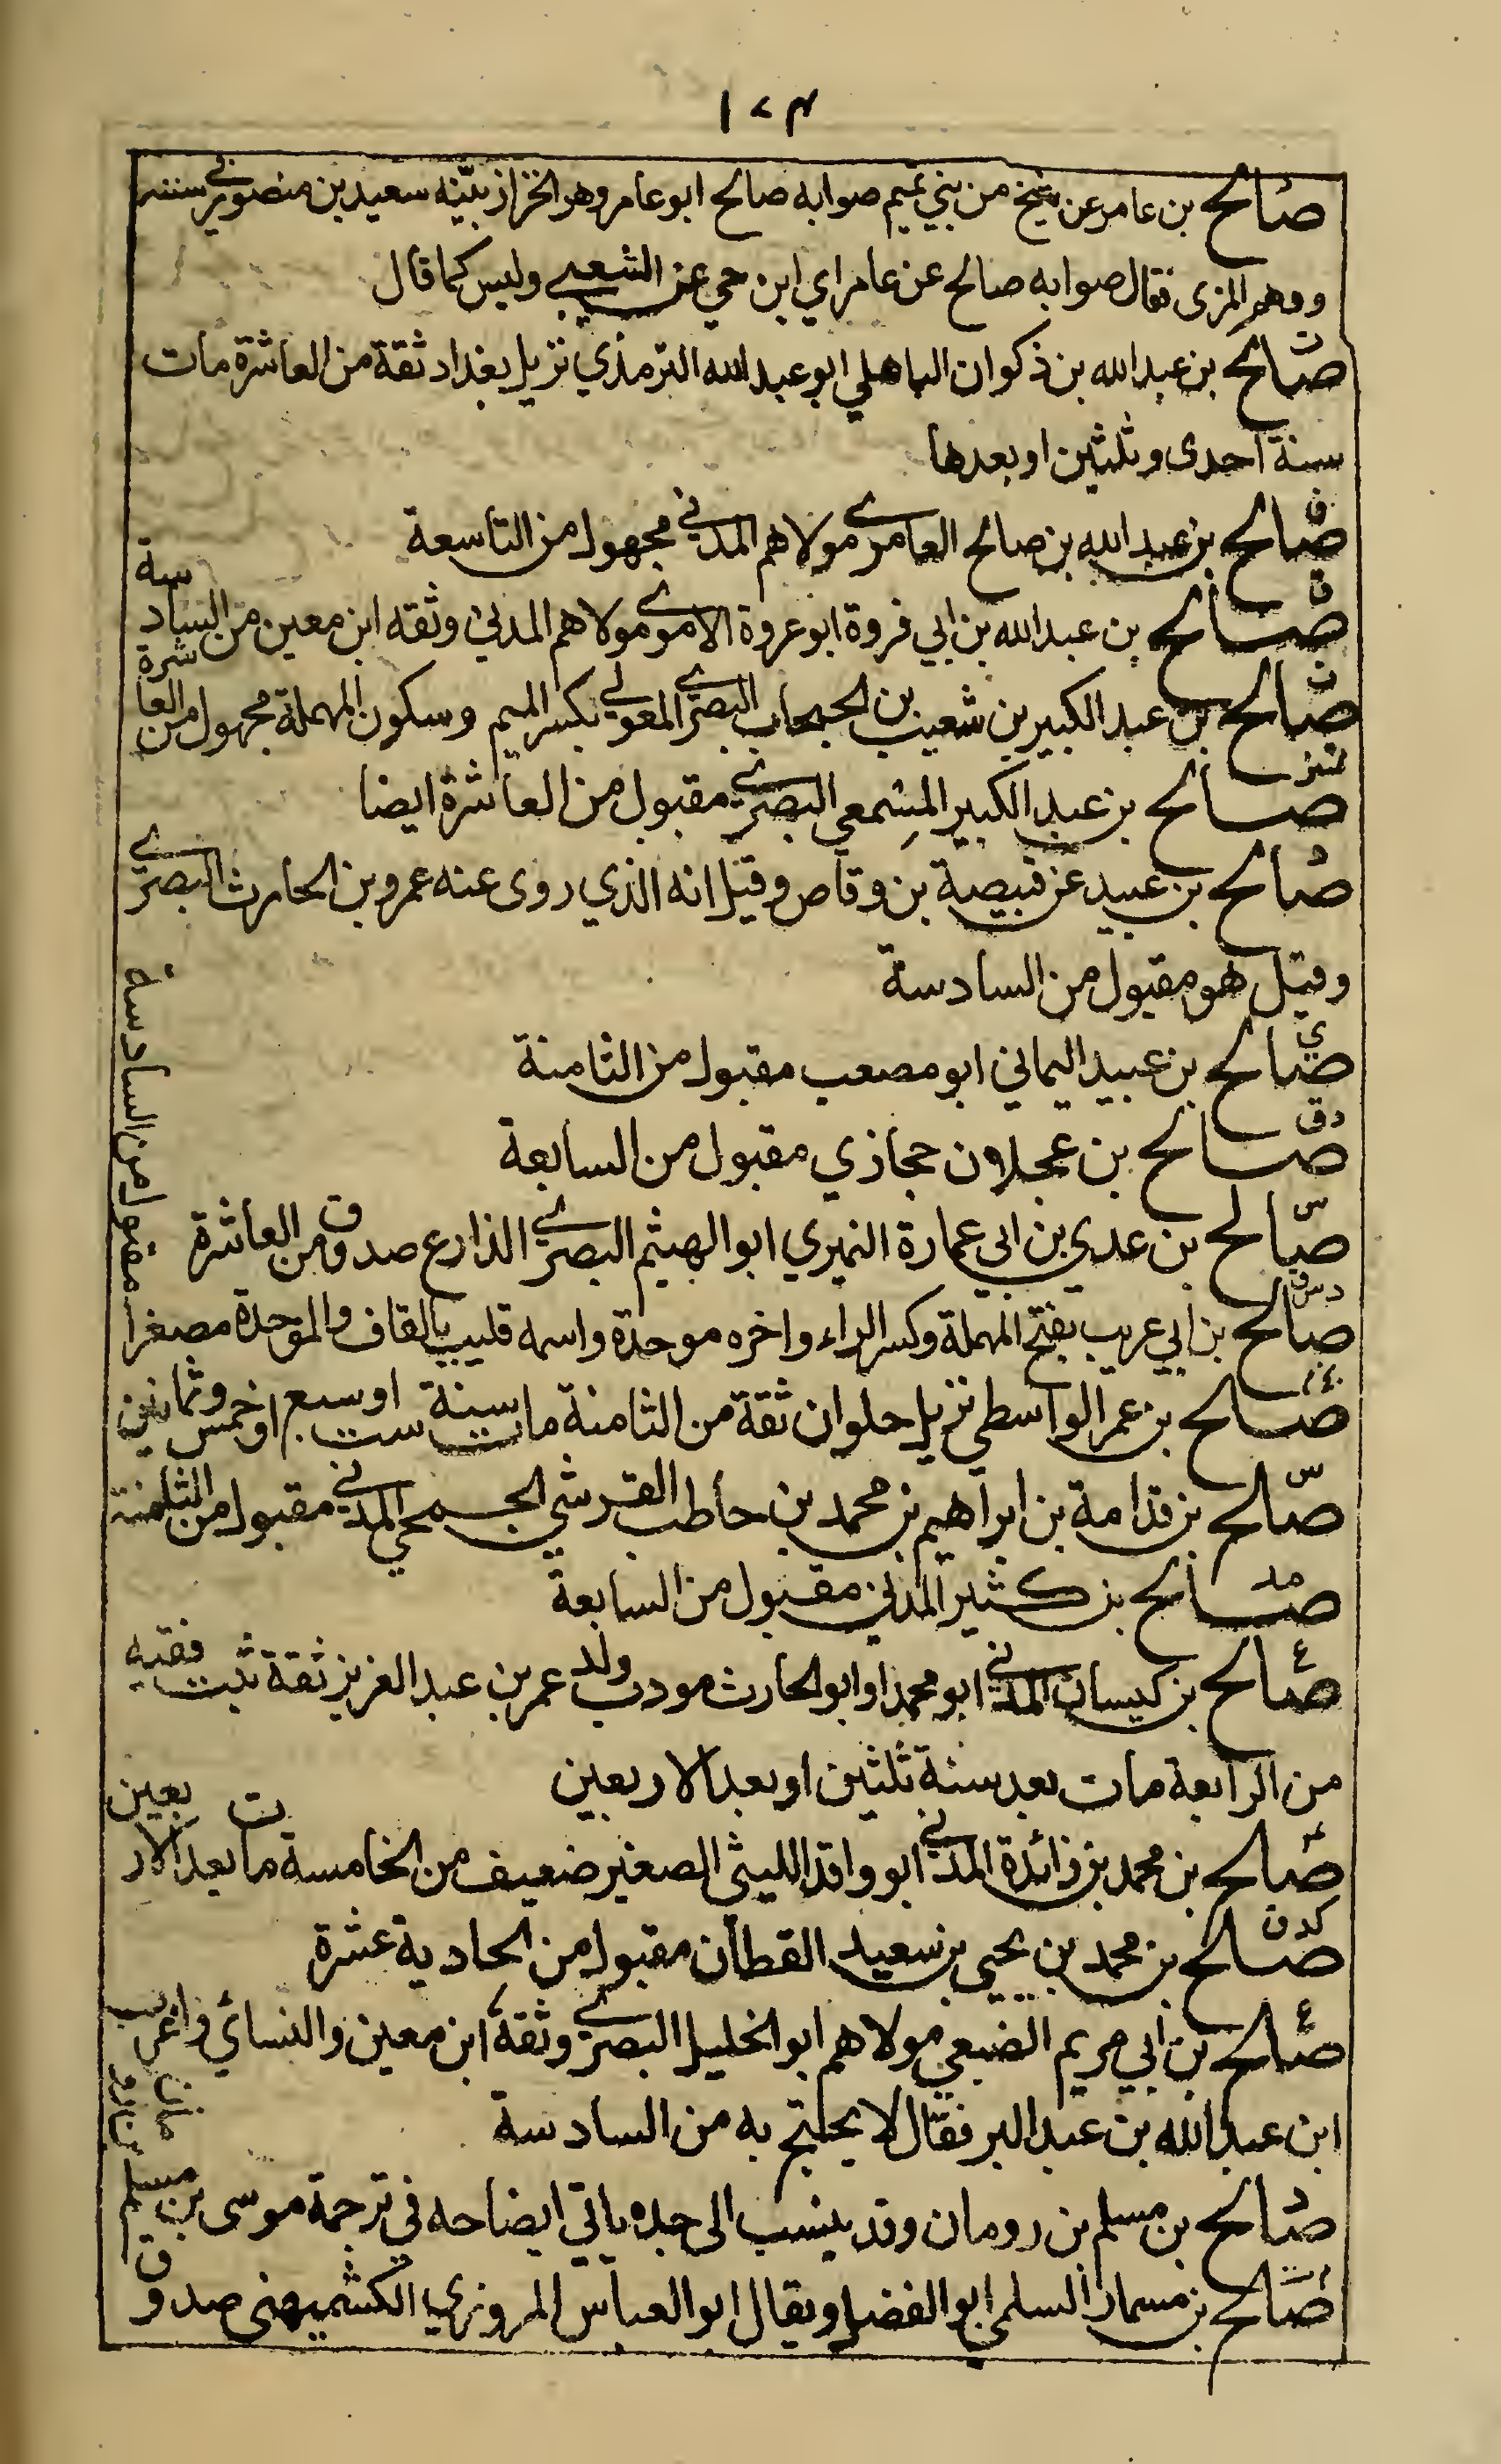 ١٧٣
صالح بن عامر عن شيخ من بني تميم صوابه صالح ابو عامر وهو الخزاز بينه سعيد بن منصور في سننه
ووهم المزى فقال صوابه صالح عن عامر اي ابن حي عن الشعبي وليس كما قال
ت صالح بن عبد الله بن ذكوان الباهلي ابو عبد الله الترمذي نزيل بغداد ثقة من العاشرة مات
سنة احدى وثلثين او بعدها
ق صالح بن عبد الله بن صالح العامري مولاهم المدني مجهول من التاسعة
ق صالح بن عبد الله بن ابي فروة ابو عروة الاموي مولاهم المدني وثقه ابن معين من السادسة
ت صالح بن عبد الكبير بن شعيب بن الحبحاب البصري المعولي بكسر الميم وسكون المهملة مجهول من العاشرة
تمييز صالح بن عبد الكبير المسمعي البصري مقبول من العاشرة ايضا
د صالح بن عبيد عن قبيصة بن وقاص وقيل انه الذي روى عنه عمرو بن الحارث البصري
وقيل هو مقبول من السادسة
ي صالح بن عبيد اليماني ابو مصعب مقبول من الثامنة
دق صالح بن عجلان حجازي مقبول من السابعة
س صالح بن عدي بن ابي عمارة النميري ابو الهيثم البصري الذارع صدوق من العاشرة
دس ق صالح بن ابي عريب بفتح المهملة وكسر الراء واخره موحدة واسمه قليب بالقاف والموحدة مصغرا مقبول من السادسة
صالح بن عمر الواسطي نزيل حلوان ثقة من الثامنة مات سنة ست او سبع او خمس وثمانين
س صالح بن قدامة بن ابراهيم بن محمد بن حاطب القرشي الجمحي المدني مقبول من الثامنة
مد صالح بن كثير المدني مقبول من السابعة
ع صالح بن كيسان المدني ابو محمد او ابو الحارث مودب ولد عمر بن عبد العزيز ثقة ثبت فقيه
من الرابعة مات بعد سنة ثلثين او بعد الاربعين
صالح بن محمد بن زائدة المدني ابو واقد الليثي الصغير ضعيف من الخامسة مات بعد الاربعين
كد ق صالح بن محمد بن يحيى بن سعيد القطان مقبول من الحادية عشرة
ع صالح بن ابي مريم الضبعي مولاهم ابو الخليل البصري وثقه ابن معين والنسائي واغرب
ابن عبد الله بن عبد البر فقال لا يحتج به من السادسة
د صالح بن مسلم بن رومان وقد ينسب الى جده ياتي ايضاحه في ترجمة موسى بن مسلم بن رومان
صالح بن مسمار السلمي ابو الفضل ويقال ابو العباس المروزي الكشميهني صدوق